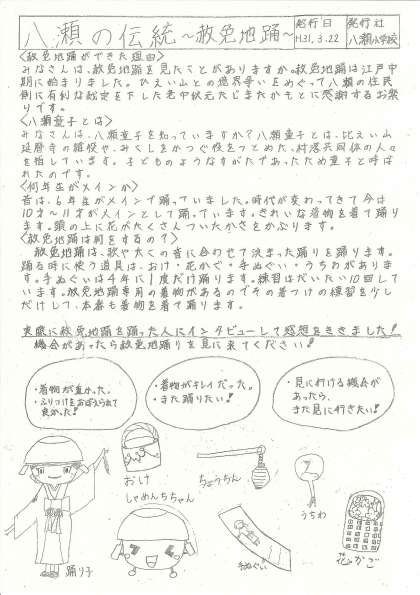 八瀬の伝統～赦免地踊～
発行日
H.31.3.22
発行社
八瀬小学校
<赦免地踊ができた理由>
みなさんは、赦免地踊を見たことがありますか。赦免地踊は江戸中
期に始まりました。ひえい山との境界争いをめぐって八瀬の住民
側に有利な裁定を下した老中秋元たじまかみもとに感謝するお祭
りです。
<八瀬童子とは>
みなさんは、八瀬童子を知っていますか?八瀬童子とは、比えい山
延暦寺の雑役や、みくしをかつぐ役をつとめた、村落共同体の人々
を指しています。子どものようなすがたであったため童子と呼ば
れたのです。
<何年生がメインか>
昔は、6年生がメインで踊っていました。時代が変わってきて今は
10才～11才がメインとして踊っています。きれいな着物を着て踊り
ます。頭の上に花がたくさんついたかさをかぶります。
<赦免地踊は何をするの?>
赦免地踊は、歌や太この音に合わせて決まった踊りを踊ります。
踊る時に使う道具は、おけ・花かご・手ぬぐい・うちわがありま
す。手ぬぐいは4年に1度だけ踊ります。練習はだいたい10回して
います。赦免地踊専用の着物があるのでその着つけの練習を少し
だけして、本番も着物を着て踊ります。
実際に赦免地踊を踊った人にインタビューして感想をききました!
機会があったら赦免地踊りを見に来てください!
・着物が重かった。
・ふりつけをおぼえられて
良かった!
・着物がキレイだった。
・また踊りたい!
・見に行ける機会が
あったら、
また見に行きたい!
おけ
しゃめんちちゃん
ちょうちん
うちわ
手ぬぐい
花かご
踊り子